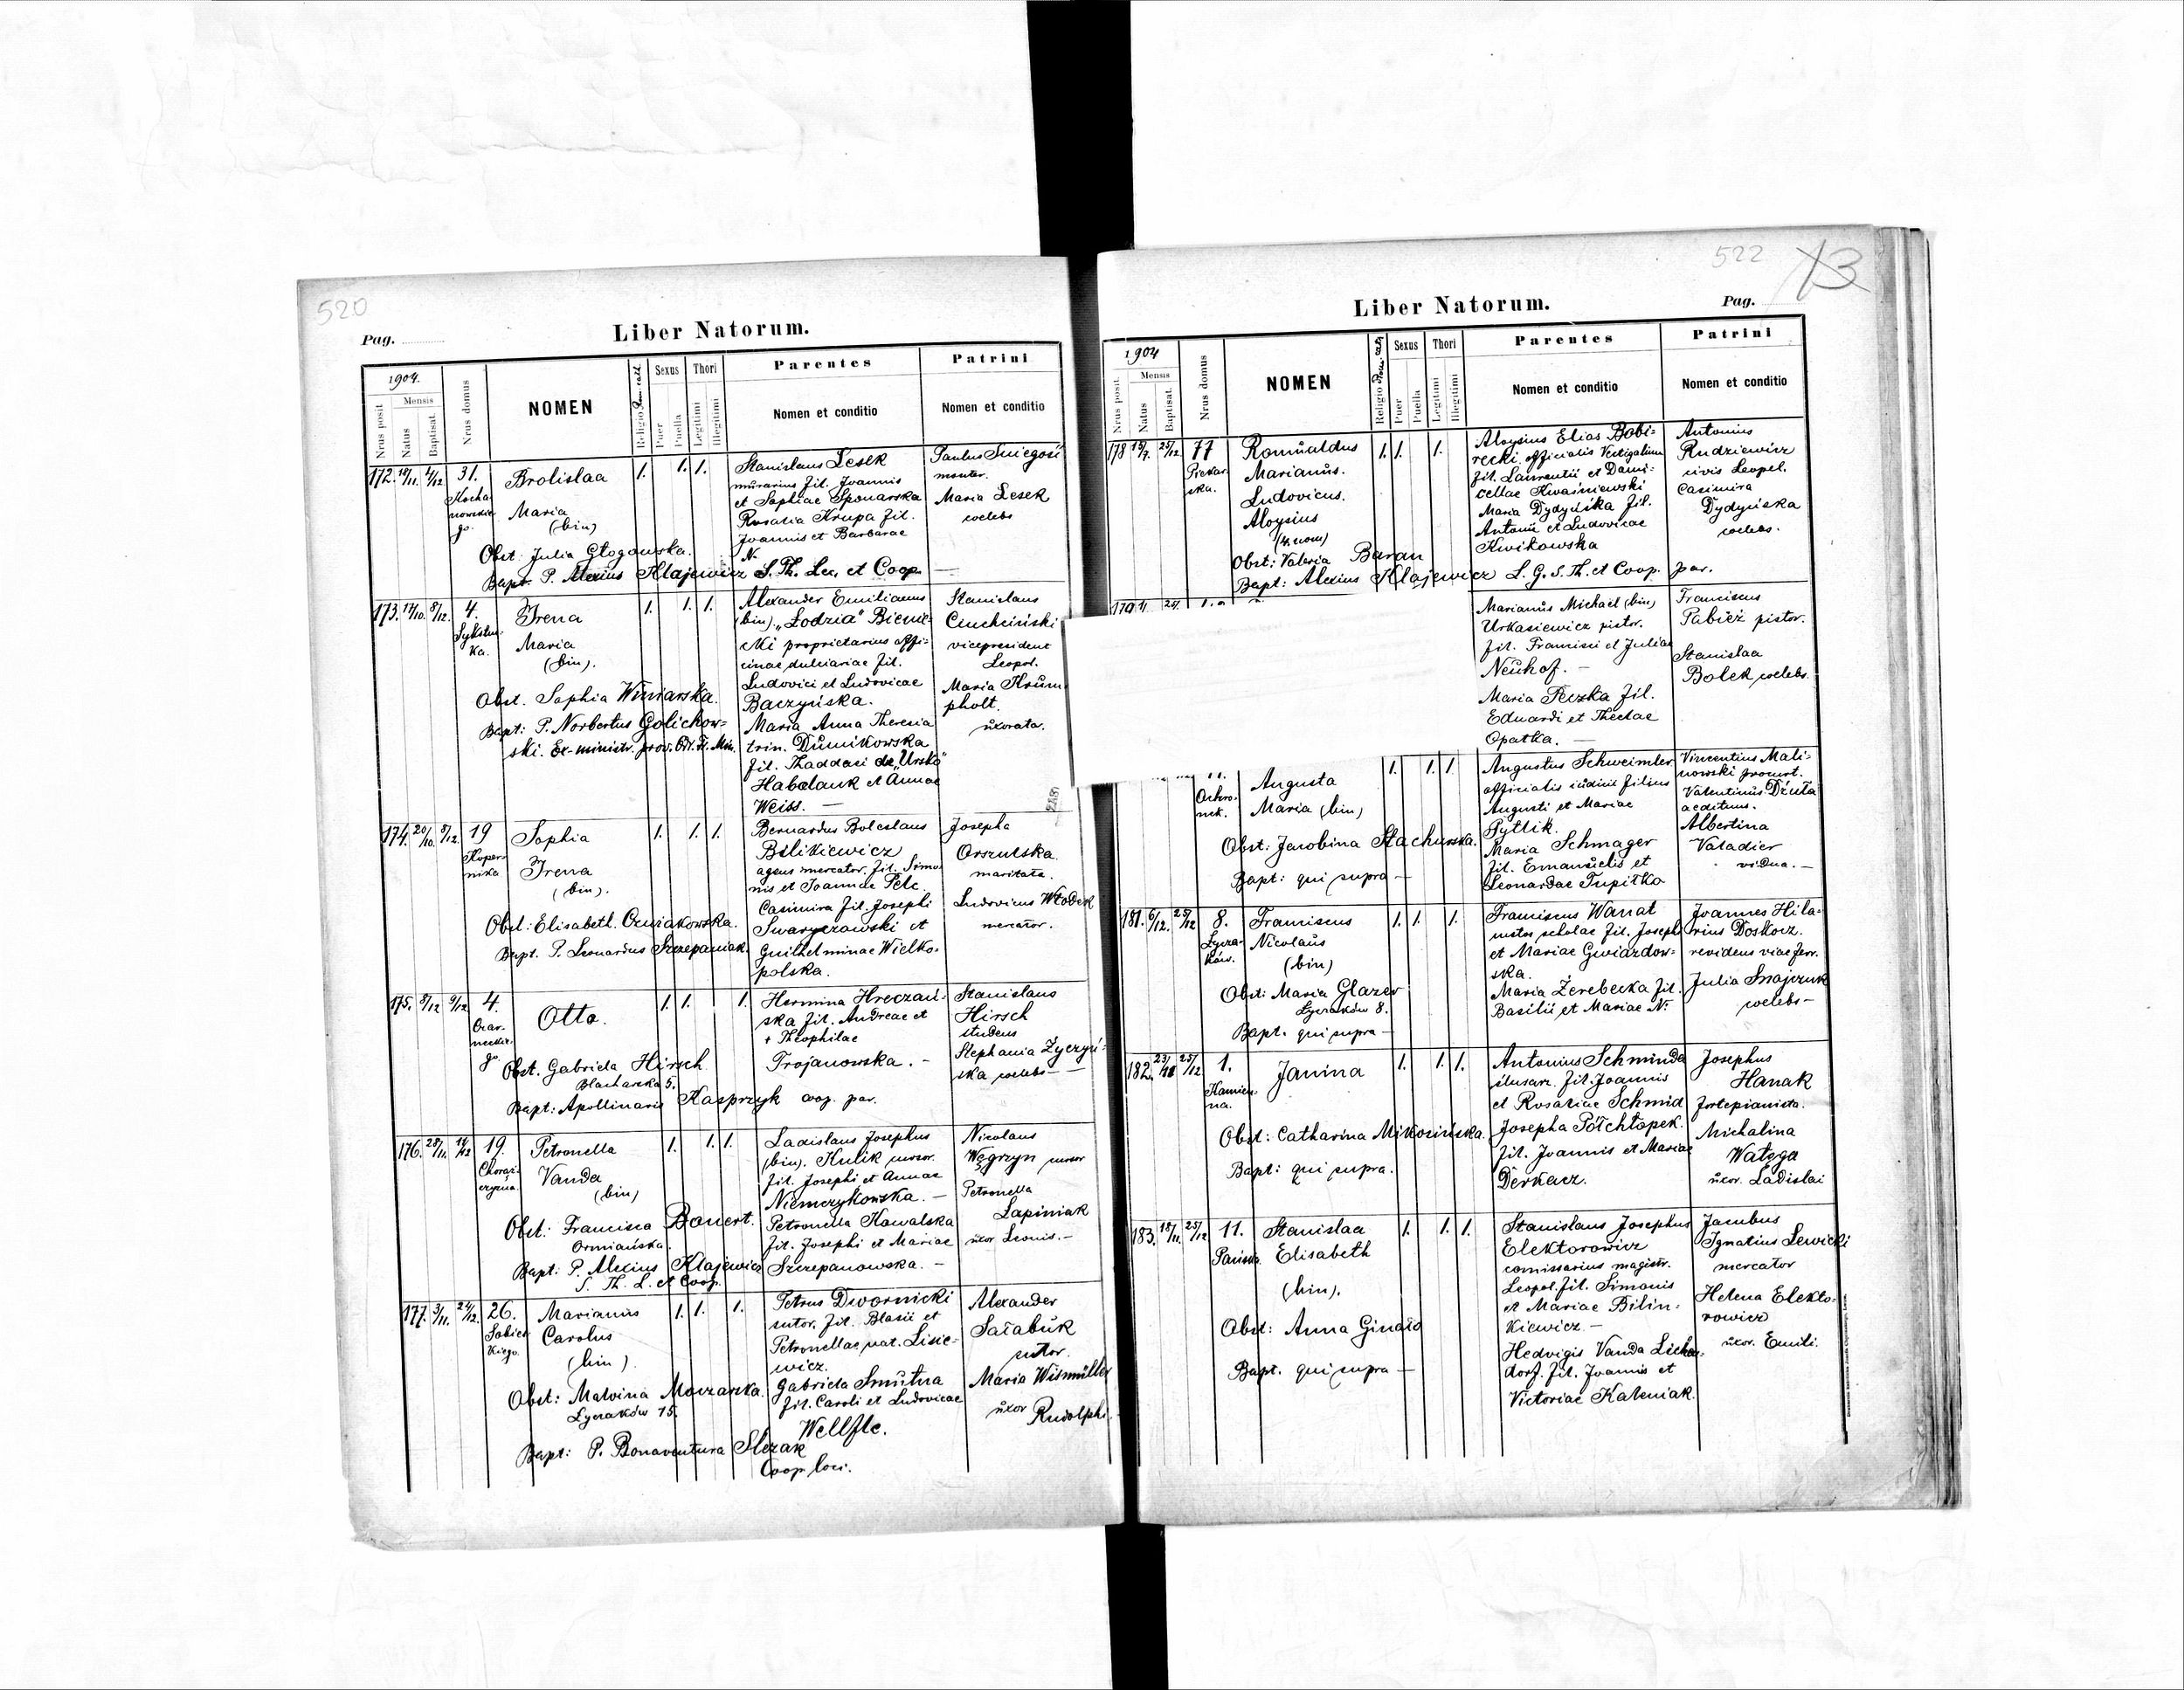 520
Pag.
Liber Natorum.
1904.
Nrus posit
Mensis
Natus
Baptisat.
Nrus domus
NOMEN
Religio Rom. cath.
Sexus
Puer
Puella
Thori
Legitimi
Illegitimi
Parentes
Nomen et conditio
Patrini
Nomen et conditio
172. 31.
Brolislaa
Maria
(bin)
1. 1. 1.
Stanislaus Lesek
murarius fil. Joannis
et Sophiae Sponarska
Rosalia Krupa fil.
Joannis et Barbarae
N.
Paulus
Maria Lesek
coelebs
Obst. Julia Głogowska.
Bapt. P. Alexius Klajewicz S. Th. Lec. et Coop.
173. 17/10. 8/12. 4.
Sykstu-
ka.
Irena
Maria
(bin).
1. 1. 1.
Alexander Emilianus
(bin) „Łodzia"
proprietarius offi-
cinae dulciariae fil.
Ludovici et Ludovicae
Baczyńska.
Maria Anna Theresia
trin. Duńikowska
fil. Thaddaei de „Ursko"
Habdank et Annae
Weiss. —
Stanislaus
Ciuchciński
vicepresident
Leopol.
Maria Krum
pholt.
uxorata.
Obst. Sophia Winiarska.
Bapt: P. Norbertus Golichow-
ski. Ex-ministr. prov. Ord. Fr. Min.
174. 20/10. 8/12. 19
Koper-
nika
Sophia
Irena
(bin).
1. 1. 1.
Bernardus Boleslaus
Bilikiewicz
agens mercator. fil. Simo
nis et Joannae Pelc.
Casimira fil. Josephi
Swaryczowski et
Guilhelminae Wielko-
polska.
Josepha
Orszulska.
maritata.
Ludovicus Włodek
mercator.
Obst: Elisabeth. Czuiakowska.
Bapt. P. Leonardus Szczepaniak.
175. 8/12 9/12 4.
Czar-
neckie-
go.
Otto.
1. 1. 1.
Hermina Hreczań-
ska fil. Andreae et
+ Theophilae
Trojanowska. —
Stanislaus
Hirsch
studens
Stephania Życzyń-
ska coelebs —
Obst. Gabriela Hirsch
Blacharska 5.
Bapt: Apollinaris Kasprzyk coop. par.
176. 28/11. 11/12 19.
Chorąż-
czyzna.
Petronella
Vanda
(bin)
1. 1. 1.
Ladislaus Josephus
(bin). Kulik cursor.
fil. Josephi et Annae
Niemczykowska. —
Petronella Kowalska
fil. Josephi et Mariae
Szczepanowska. —
Nicolaus
Węgrzyn cursor
Petronella
Lapiniak
uxor Leonis. —
Obst: Francisca Bonert.
Ormiańska.
Bapt: P. Alexius Klajewicz
S. Th. L. et Coop.
177. 3/11. 24/12. 26.
Sobies
kiego.
Marianus
Carolus
(bin).
1. 1. 1.
Petrus Dwornicki
sutor. fil. Blasii et
Petronellae, nat. Lisie-
wicz.
Gabriela Smutna
fil. Caroli et Ludovicae
Wellfle.
Alexander
Sałabuk
sutor.
Maria Wismüller
uxor Rudolphi
Obst: Malvina Moczarska.
Łyczaków 15.
Bapt: P. Bonaventura Slezak
Coop loci.
522
Liber Natorum.
Pag.
1904
Nrus posit.
Mensis
Natus
Baptisat.
Nrus domus
NOMEN
Religio Rom. cath.
Sexus
Puer
Puella
Thori
Legitimi
Illegitimi
Parentes
Nomen et conditio
Patrini
Nomen et conditio
178 15/7. 25/12 77
Piekar
ska.
Romualdus
Marianus.
Ludovicus.
Aloysius
(4. nom)
1. 1. 1.
Aloysius Elias Bobi-
recki, officialis Vectigalium
fil. Laurentii et Domi-
cellae Kwaśniewski
Maria Dydyńska fil.
Antonii et Ludovicae
Kwikowska
Antonius
Rudziewicz
civis Leopol.
Casimira
Dydyńska
coelebs.
Obst: Valeria Baran
Bapt: Alexius Klajewicz L. G. S. Th. et Coop. par.
179
Marianus Michael (bin)
Urkasiewicz pistor.
fil. Francisci et Juliae
Neuhof. —
Maria Peczka fil.
Eduardi et Theclae
Opatka. —
Franciscus
Pabież pistor.
Stanislaa
Bolek coelebs.
Augusta
Maria (bin)
1. 1. 1
Augustus Schweimler
officialis iudicii filius
Augusti et Mariae
Pytlik.
Maria Schmager
fil. Emanuelis et
Leonardae Tupitko
Vincentius Mali-
nowski
Valentinus Dżuła
aedituus.
Albertina
Valadier
vidua. —
Obst: Jacobina Stachurska.
Bapt: qui supra —
181. 6/12. 25/12 8.
Łycza-
ków.
Franciscus
Nicolaus
(bin)
1. 1. 1.
Franciscus Wanat
custos scholae fil. Josephi
et Mariae Gwiazdow-
ska.
Maria Żerebecka fil.
Basilii et Mariae N.
Joannes Hila-
rius Doskocz.
revidens viae ferr.
Julia Snajczuk
coelebs —
Obst: Maria Glazer
Łyczaków 8.
Bapt. qui supra —
182. 25/12 1.
Kamien-
na.
Janina
1. 1. 1.
Antonius Schminda
slusarz. fil. Joannis
et Rosaliae Schmid
Josepha Półchłopek.
fil. Joannis et Mariae
Derkacz.
Josephus
Hanak
fortepianista.
Michalina
Watęga
uxor. Ladislai
Obst: Catharina Mikosińska.
Bapt: qui supra.
183. 18/11. 25/12 11.
Pańska.
Stanislaa
Elisabeth
(bin).
1. 1. 1.
Stanislaus Josephus
Elektorowicz
comissarius magistr.
Leopol. fil. Simonis
et Mariae Bilin-
kiewicz. —
Hedvigis Vanda Lichen-
dorf. fil. Joannis et
Victoriae Kaleniak.
Jacobus
Ignatius Lewicki
mercator
Helena Elekto-
rowicz
uxor. Emili.
Obst: Anna
Bapt. qui supra —